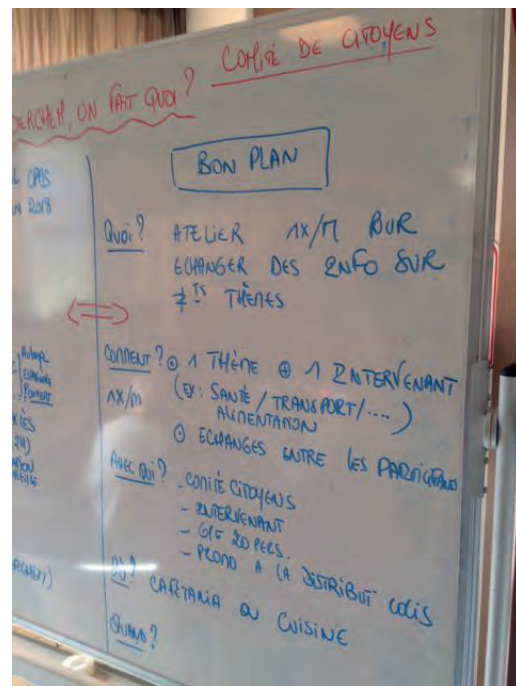 BERCHEM, ON FAIT QUOI? COMITÉ DE CITOYENS
CPAS
2018
BON PLAN
Quoi? ATELIER 1X/M POUR
ECHANGER DES INFO SUR
≠ TS THÈMES
COMMENT? ⊕ 1 THÈME ⊕ 1 INTERVENANT
1X/m (EX: SANTÉ / TRANSPORT/....)
ALIMENTATION
ECHANGES ENTRE LES PARTICIPANTS
AVEC QUI? - COMITÉ CITOYENS
- INTERVENANT
- 20 PERS.
- PROMO A LA DISTRIBUT° COLIS
OÙ? CAFETARIA OU CUISINE
QUAND?